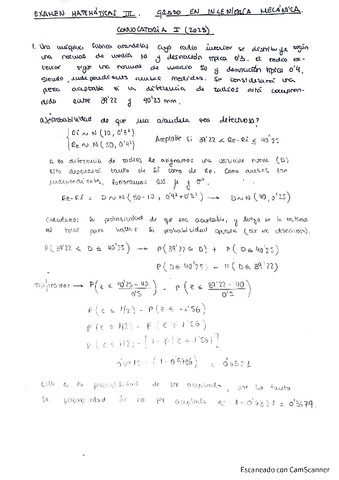 EXAMEN MATEMÁTICAS III. GRADO EN INGENIERÍA MECÁNICA
CONVOCATORIA I (2023)
1. Una máquina fabrica arandelas cuyo radio interior se distribuye según
una normal de media 10 y desviación típica 0'3. El radio ex-
terior sigue una normal de media 50 y desviación típica 0'4,
siendo independientes ambas medidas. Se considerará una
pieza aceptable si la diferencia de radios está compren-
dida entre 39'22 y 40'25 mm.
a) ¿Probabilidad de que una arandela sea defectuosa?
Ri ~ N (10, 0'3²)
Re ~ N (50, 0'4²) Aceptable si 39'22 < Re-Ri ≤ 40'25
A la diferencia de radios le asignamos una variable nueva (D)
Esta dependerá tanto de Ri como de Re. Como ambos son
independientes, μ y σ².
Re-Ri = D ~ N (50-10, 0'4²+0'3²) → D ~ N (40, 0'25)
Calculamos la probabilidad de que sea aceptable, y luego se la
al total para hallar la probabilidad opuesta (ser no defectuosa).
P(39'22 ≤ D ≤ 40'25) → P(39'22 ≤ D) + P(D ≤ 40'25)
P(D ≤ 40'25) - P(D ≤ 39'22)
Tipificamos → P(z ≤ 40'25 - 40 / 0'5) - P(z ≤ 39'22 - 40 / 0'5)
P(z ≤ 1/2) - P(z ≤ -1'56)
P(z ≤ 1/2) - P(z ≥ 1'56)
P(z ≤ 1/2) - [1 - P(z ≤ 1'56)]
0'6915 - (1 - 0'9406) = 0'6321
Esta es la probabilidad de ser aceptada, por lo tanto
la probabilidad de no ser aceptada es 1 - 0'6321 = 0'3679.
Escaneado con CamScanner